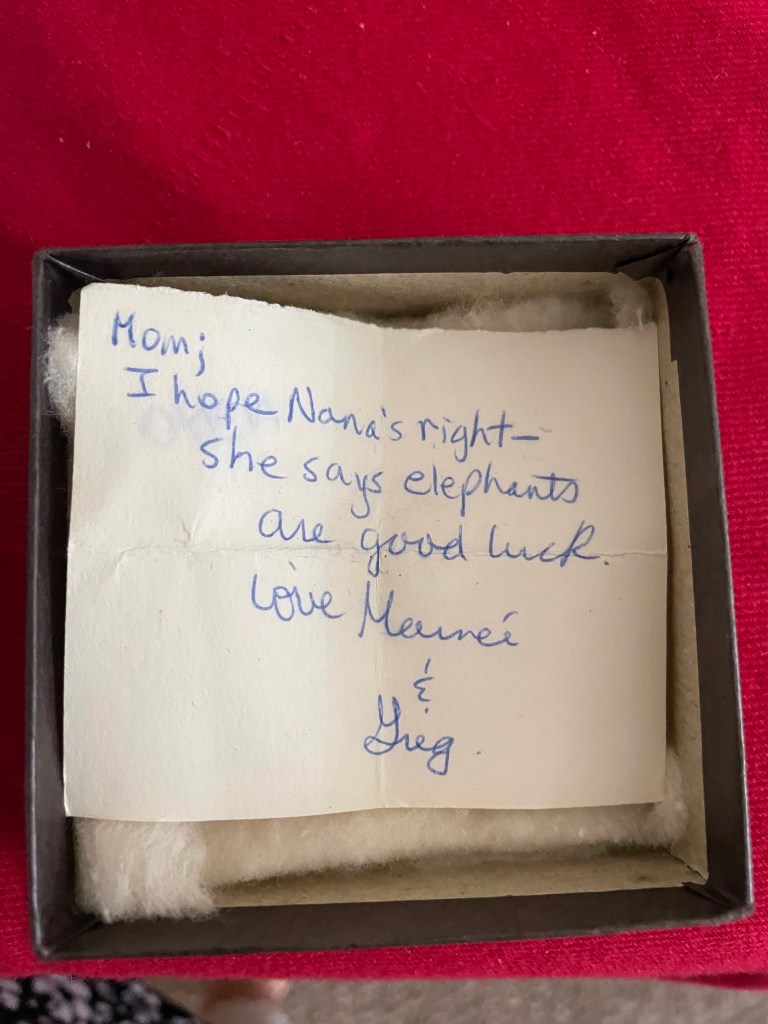 Mom;
I hope Nana's right—
she says elephants
are good luck.
Love
&
Greg.